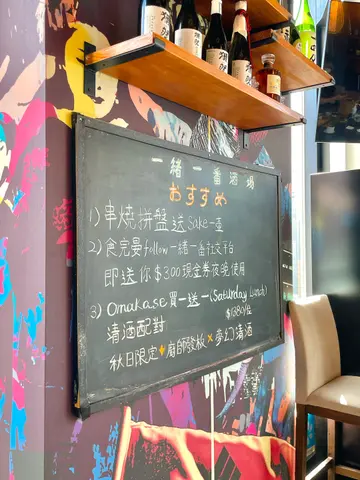 一緒一番酒場
おすすめ
1) 串燒拼盤送 Sake一壺
2) 食完晏 follow 一緒一番社交平台
即送你 $300 現金券夜晚使用
3) Omakase 買一送一 (Saturday Lunch)
$1380/位
清酒配對
秋日限定 廚師發板 夢幻清酒